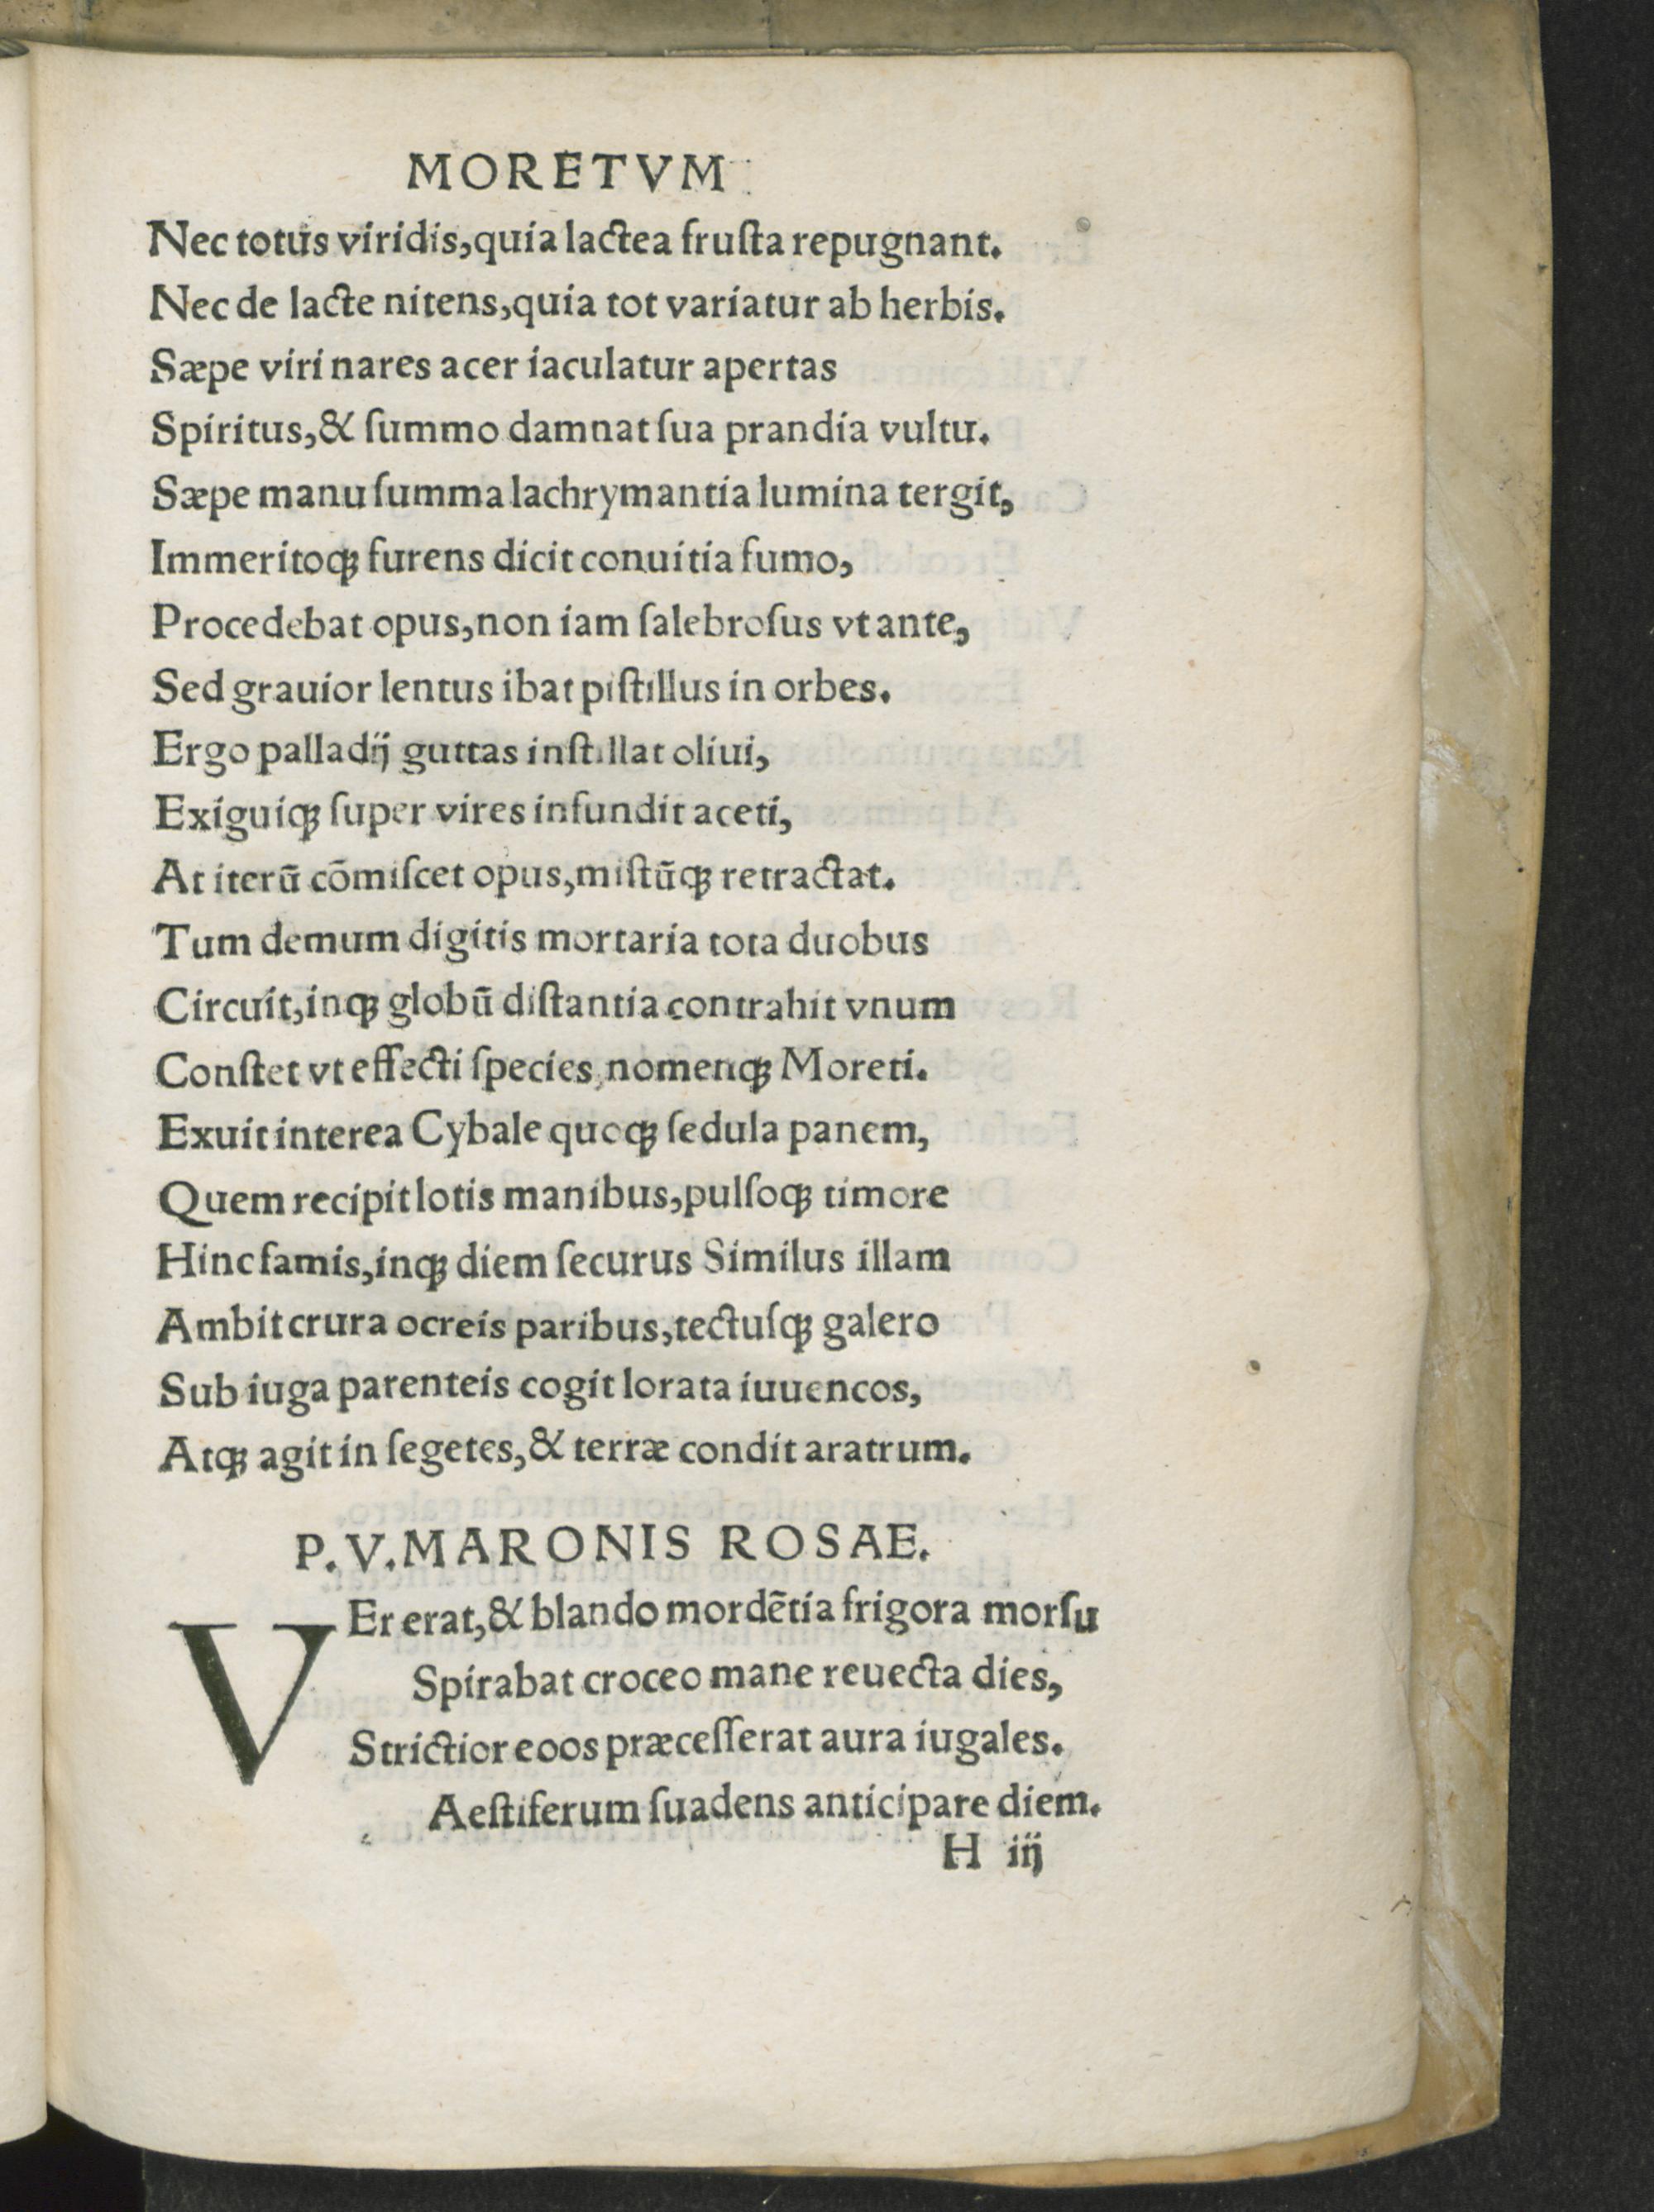 MORETVM
Nec totus viridis,quia lactea fruſta repugnant.
Nec de lacte nitens,quia tot variatur ab herbis.
Sæpe viri nares acer iaculatur apertas
Spiritus,& ſummo damnat ſua prandia vultu.
Sæpe manu ſumma lachrymantia lumina tergit,
Immeritoq; furens dicit conuitia fumo,
Procedebat opus,non iam ſalebroſus vt ante,
Sed grauior lentus ibat piſtillus in orbes.
Ergo palladij guttas inſtillat oliui,
Exiguiq; ſuper vires infundit aceti,
At iterū cōmiſcet opus,miſtūq; retractat.
Tum demum digitis mortaria tota duobus
Circuit,inq; globū diſtantia contrahit vnum
Conſtet vt effecti ſpecies,nomenq; Moreti.
Exuit interea Cybale quoq; ſedula panem,
Quem recipit lotis manibus,pulſoq; timore
Hinc famis,inq; diem ſecurus Similus illam
Ambit crura ocreis paribus,tectuſq; galero
Sub iuga parenteis cogit lorata iuuencos,
Atq; agit in ſegetes,& terræ condit aratrum.
P.V.MARONIS ROSAE.
VEr erat,& blando mordētia frigora morſu
Spirabat croceo mane reuecta dies,
Strictior eoos præceſſerat aura iugales.
Aeſtiferum ſuadens anticipare diem.
H iij